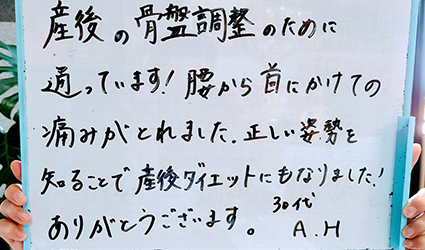 産後の骨盤調整のために
通っています!腰から首にかけての
痛みがとれました.正しい姿勢を
知ることで産後ダイエットにもなりました!
ありがとうございます。30代
A.H